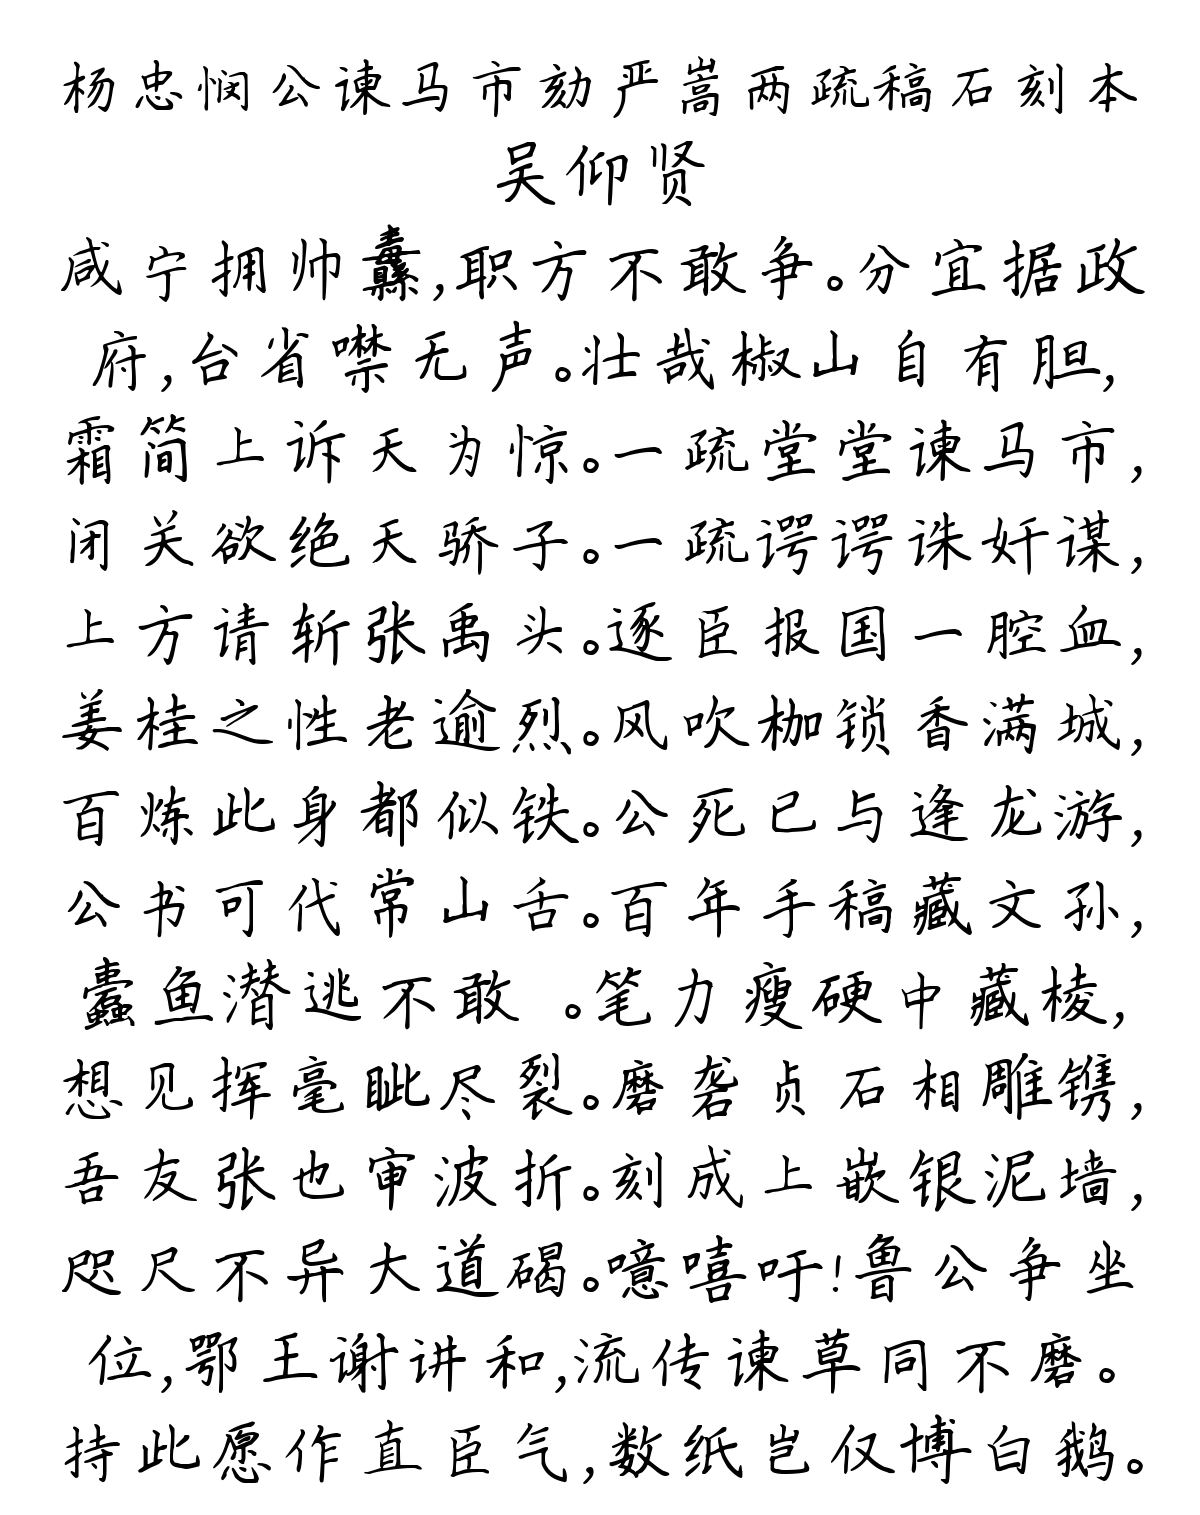 杨忠悯公谏马市劾严嵩两疏稿石刻本
吴仰贤
咸宁拥帅纛,职方不敢争。分宜据政
府,台省噤无声。壮哉椒山自有胆,
霜简上诉天为惊。一疏堂堂谏马市,
闭关欲绝天骄子。一疏谔谔诛奸谋,
上方请斩张禹头。逐臣报国一腔血,
姜桂之性老逾烈。风吹枷锁香满城,
百炼此身都似铁。公死已与逢龙游,
公书可代常山舌。百年手稿藏文孙,
蠹鱼潜逃不敢 。笔力瘦硬中藏棱,
想见挥毫眦尽裂。磨砻贞石相雕镌,
吾友张也审波折。刻成上嵌银泥墙,
咫尺不异大道碣。噫嘻吁!鲁公争坐
位,鄂王谢讲和,流传谏草同不磨。
持此愿作直臣气,数纸岂仅博白鹅。